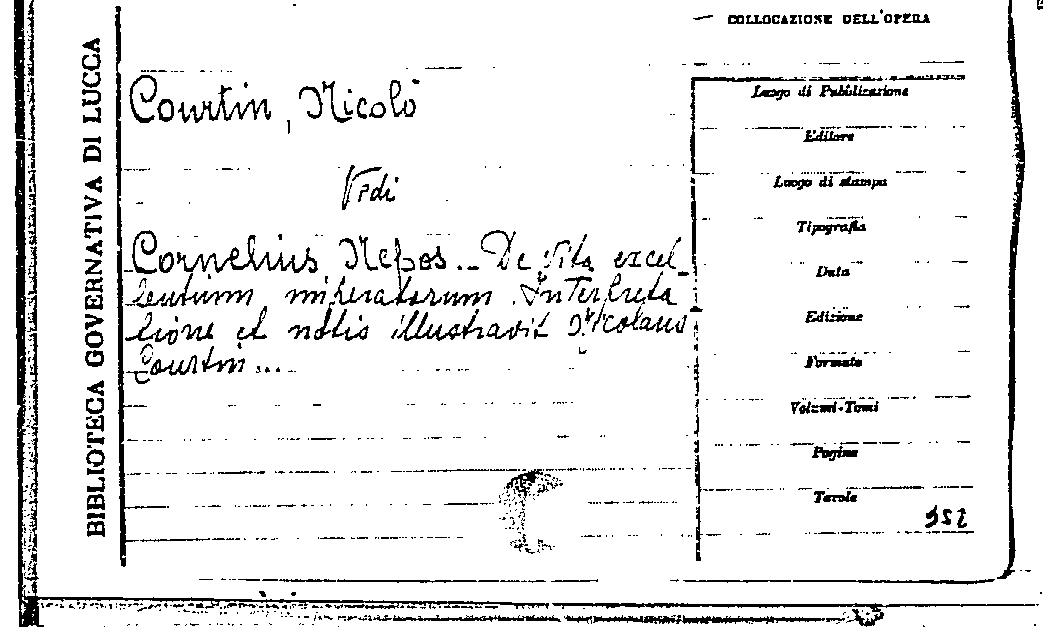 COLLOCAZIONE DELL'OPERA
BIBLIOTECA GOVERNATIVA DI LUCCA
Courtin, Nicolò
Vedi
Cornelius Nepos... De vita excel-
lentium imperatorum. Interpreta
tione et notis illustravit Nicolaus
Courtin...
Luogo di Pubblicazione
Editore
Luogo di stampa
Tipografia
Data
Edizione
Formato
Volumi-Tomi
Pagine
Tavole
952